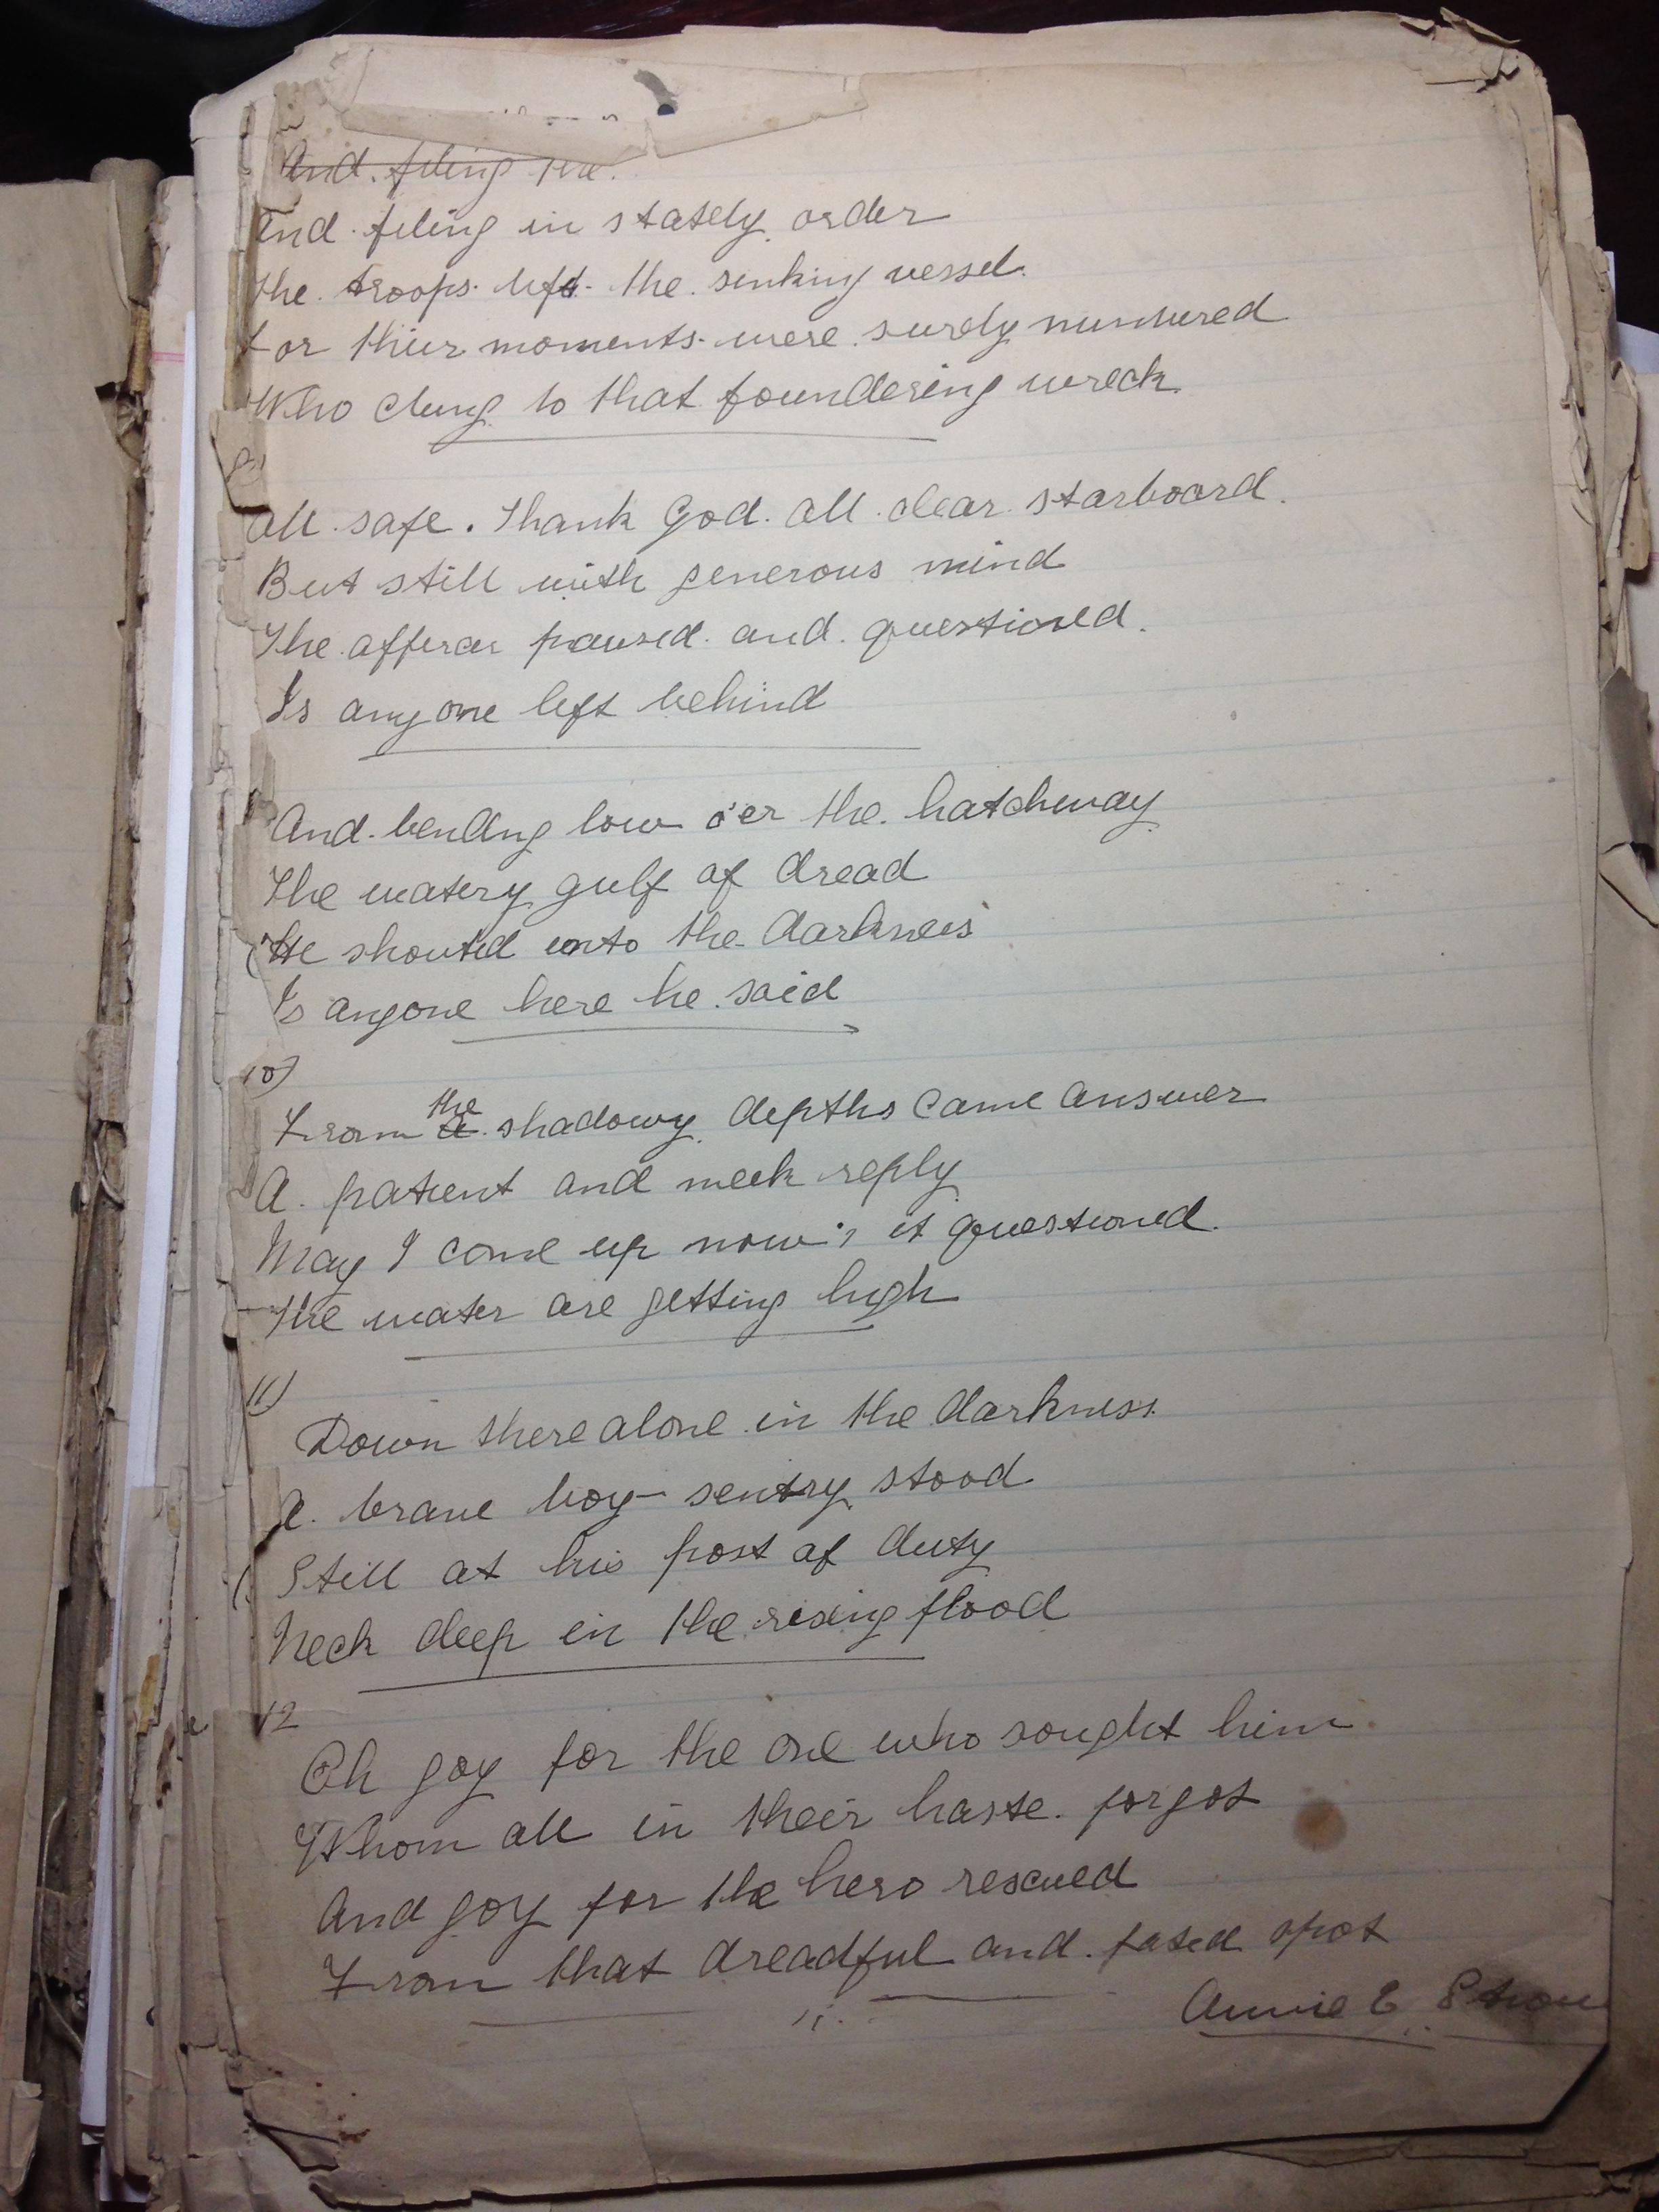 And. filing the.
And filing in stately order
The troops left the sinking vessel.
For thier moments were surely numbered
Who clung to that foundering wreck.
All safe. Thank God. All clear starboard.
But still with generous mind
The afficer paused and questioned.
Is any one left behind
And bending low o'er the hatchway
The watery gulf of dread
He shouted into the darkness
Is anyone here he said
10)
From the a shadowy depths came answer
A patient and meek reply
May I come up now; it questioned.
The water are getting high
11)
Down there alone in the darkness.
A brave boy-sentry stood
Still at his post of duty
Neck deep in the rising flood
12
Oh joy for the one who sought him
Whom all in their haste forgot
And joy for the hero rescued
From that dreadful and fated spot
Annie E